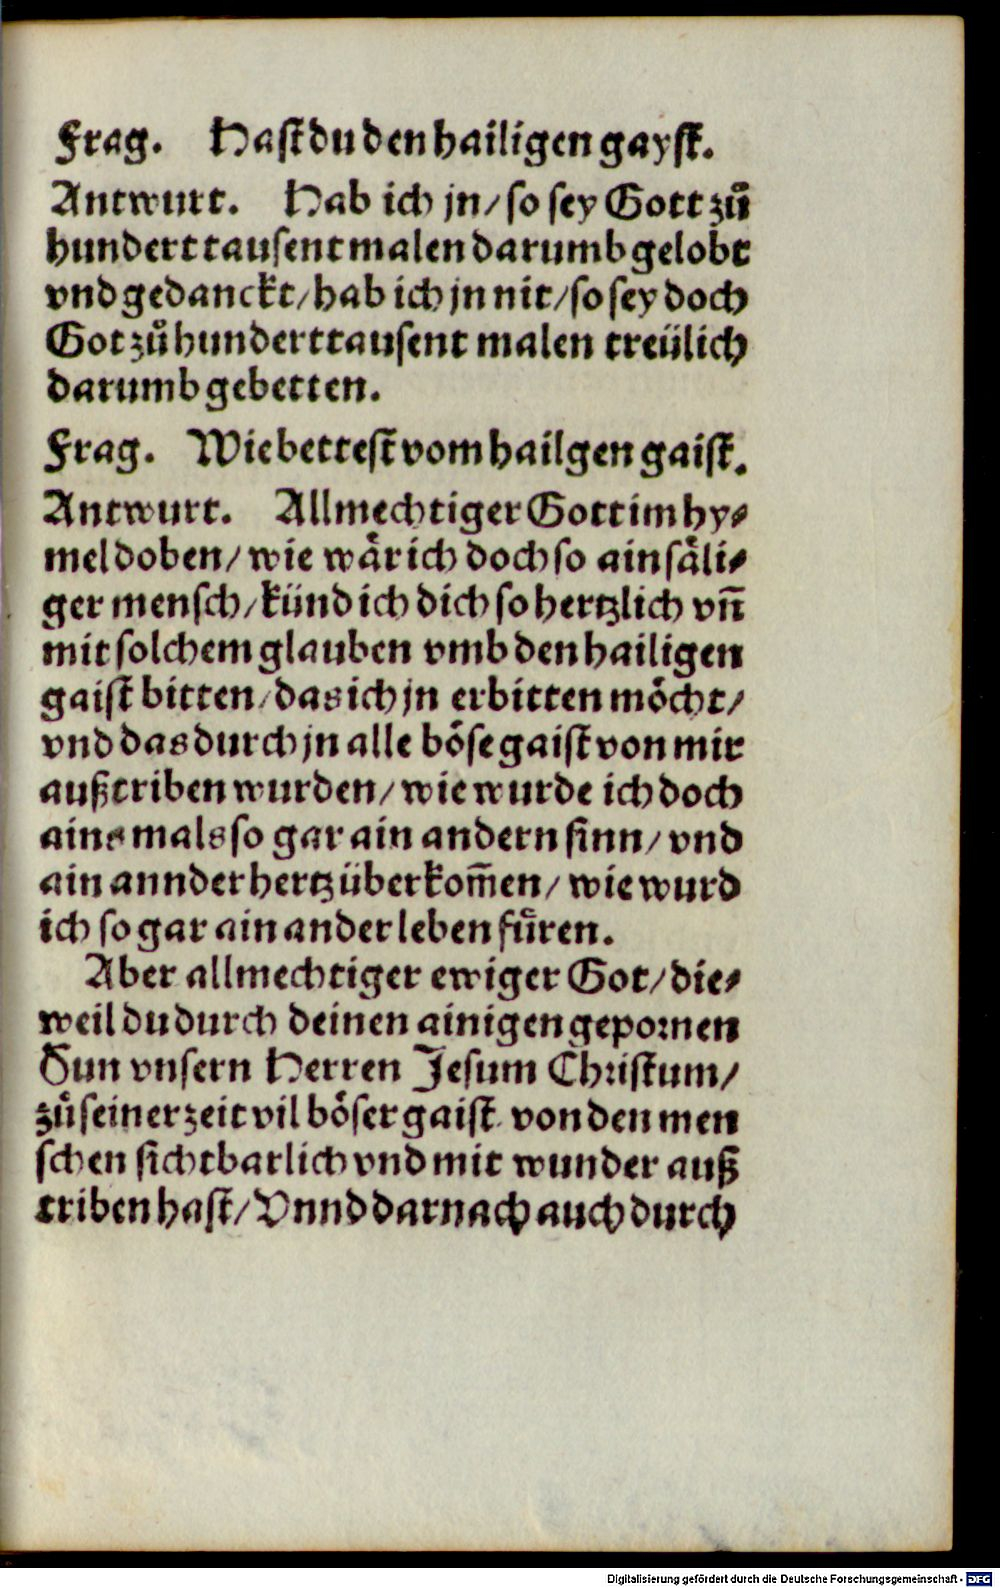 Frag. Hast du den hailigen gayst.
Antwurt. Hab ich jn/ so sey Gott zuͦ
hundert tausent malen darumb gelobt
vnd gedanckt/ hab ich jn nit/ so sey doch
Got zuͦ hundert tausent malen treülich
darumb gebetten.
Frag. Wie bettest vom hailgen gaist.
Antwurt. Allmechtiger Gott im hy⸗
mel doben/ wie waͤr ich doch so ain saͤli⸗
ger mensch/ künd ich dich so hertzlich vn̄
mit solchem glauben vmb den hailigen
gaist bitten/ das ich jn erbitten moͤcht/
vnd das durch jn alle boͤse gaist von mir
außtriben wurden/ wie wurde ich doch
ains mals so gar ain andern sinn/ vnd
ain annder hertz überkom̄en/ wie wurd
ich so gar ain ander leben fuͤren.
Aber allmechtiger ewiger Got/ die⸗
weil du durch deinen ainigen gepornen
Sun vnsern Herren Jesum Christum/
zuͦ seiner zeit vil boͤser gaist von den men
schen sichtbarlich vnd mit wunder auß
triben hast/ Vnnd darnach auch durch
Digitalisierung gefördert durch die Deutsche Forschungsgemeinschaft - DFG